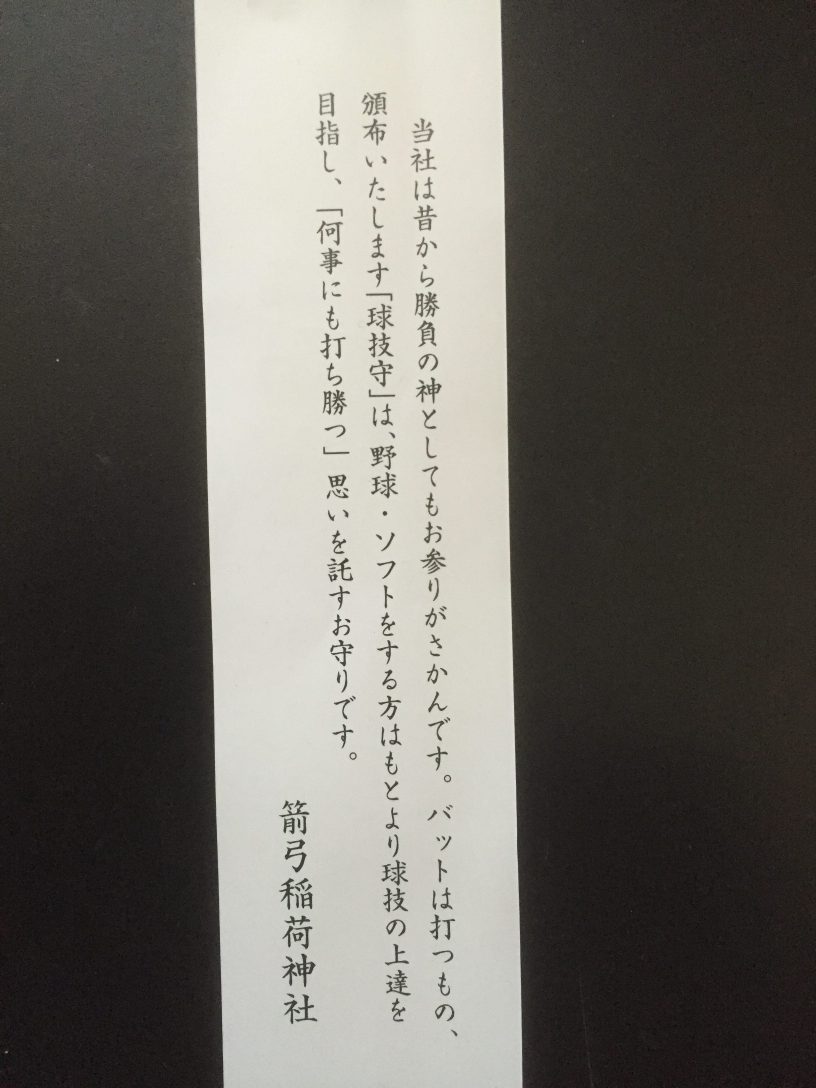 当社は昔から勝負の神としてもお参りがさかんです。バットは打つもの、
頒布いたします「球技守」は、野球・ソフトをする方はもとより球技の上達を
目指し、「何事にも打ち勝つ」思いを託すお守りです。
箭弓稲荷神社